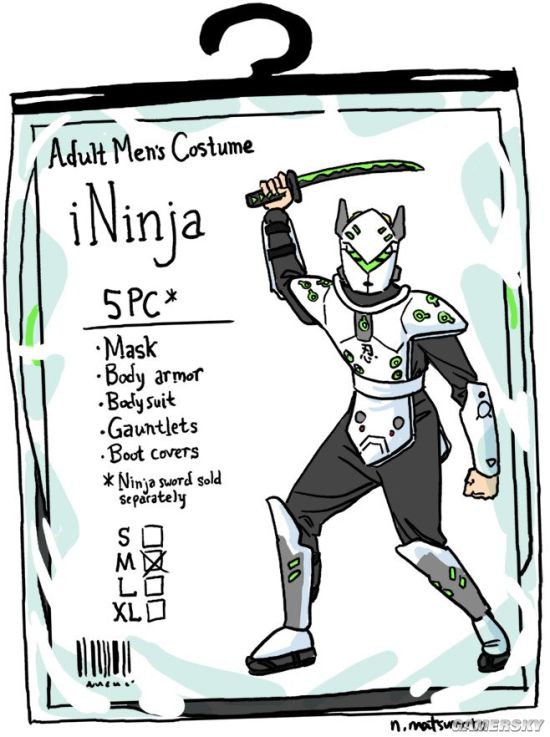 Adult Men's Costume
iNinja
5PC*
·Mask
·Body armor
·Bodysuit
·Gauntlets
·Boot covers
*Ninja sword sold
separately
忍
S
M
L
XL
GAMERSKY